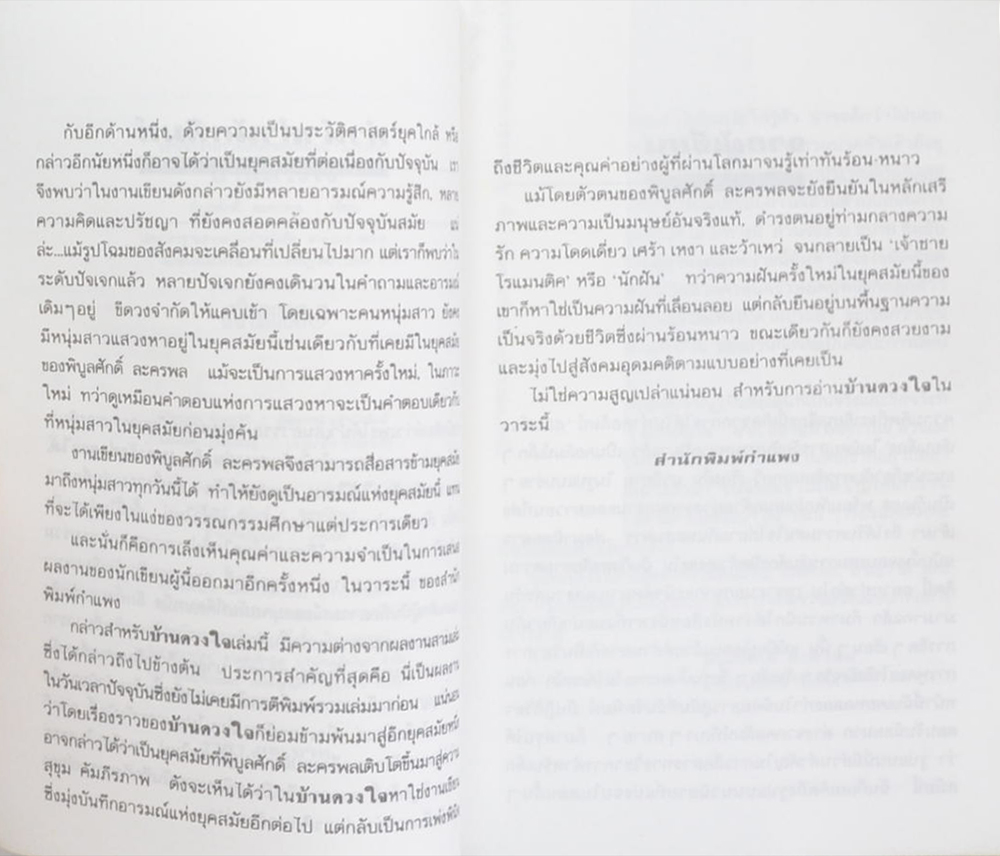 กับอีกด้านหนึ่ง, ด้วยความเป็นประวัติศาสตร์ยุคใกล้
กล่าวอีกนัยหนึ่งก็อาจได้ว่าเป็นยุคสมัยที่ต่อเนื่องกับปัจจุบัน เรา
จึงพบว่าในงานเขียนดังกล่าวยังมีหลายอารมณ์ความรู้สึก, หลาย
ความคิดและปรัชญา ที่ยังคงสอดคล้องกับปัจจุบันสมัย
ล่ะ...แม้รูปโฉมของสังคมจะเคลื่อนที่เปลี่ยนไปมาก แต่เราก็พบว่าใน
ระดับปัจเจกแล้ว หลายปัจเจกยังคงเดินวนในคำถามและอารมณ์
เดิมๆอยู่ ขีดวงจำกัดให้แคบเข้า โดยเฉพาะคนหนุ่มสาว ยังคง
มีหนุ่มสาวแสวงหาอยู่ในยุคสมัยนี้เช่นเดียวกับที่เคยมีในยุคสมัย
ของพิบูลศักดิ์ ละครพล แม้จะเป็นการแสวงหาครั้งใหม่, ในภาวะ
ใหม่ ทว่าดูเหมือนคำตอบแห่งการแสวงหาจะเป็นคำตอบเดียวกับ
ที่หนุ่มสาวในยุคสมัยก่อนมุ่งค้น
งานเขียนของพิบูลศักดิ์ ละครพลจึงสามารถสื่อสารข้ามยุคสมัย
มาถึงหนุ่มสาวทุกวันนี้ได้ ทำให้ยังดูเป็นอารมณ์แห่งยุคสมัยนี้ แทน
ที่จะได้เพียงในแง่ของวรรณกรรมศึกษาแต่ประการเดียว
และนั่นก็คือการเล็งเห็นคุณค่าและความจำเป็นในการเสนอ
ผลงานของนักเขียนผู้นี้ออกมาอีกครั้งหนึ่ง ในวาระนี้ ของสำนัก
พิมพ์กำแพง
กล่าวสำหรับบ้านดวงใจเล่มนี้ มีความต่างจากผลงานสามเล่ม
ซึ่งได้กล่าวถึงไปข้างต้น ประการสำคัญที่สุดคือ นี่เป็นผลงาน
ในวันเวลาปัจจุบันซึ่งยังไม่เคยมีการตีพิมพ์รวมเล่มมาก่อน แน่นอน
ว่าโดยเรื่องราวของบ้านดวงใจก็ย่อมข้ามพ้นมาสู่อีกยุคสมัยหนึ่ง
อาจกล่าวได้ว่าเป็นยุคสมัยที่พิบูลศักดิ์ ละครพลเติบโตขึ้นมาสู่ความ
สุขุม คัมภีรภาพ ดังจะเห็นได้ว่าในบ้านดวงใจหาใช่งานเขียน
ซึ่งมุ่งบันทึกอารมณ์แห่งยุคสมัยอีกต่อไป แต่กลับเป็นการเพ่งพินิจ
ถึงชีวิตและคุณค่าอย่างผู้ที่ผ่านโลกมาจนรู้เท่าทันร้อน-หนาว
แม้โดยตัวตนของพิบูลศักดิ์ ละครพลจะยังยืนยันในหลักเสรี
ภาพและความเป็นมนุษย์อันจริงแท้, ดำรงตนอยู่ท่ามกลางความ
รัก ความโดดเดี่ยว เศร้า เหงา และว้าเหว่ จนกลายเป็น 'เจ้าชาย
โรแมนติค' หรือ 'นักฝัน' ทว่าความฝันครั้งใหม่ในยุคสมัยนี้ของ
เขาก็หาใช่เป็นความฝันที่เลื่อนลอย แต่กลับยืนอยู่บนพื้นฐานความ
เป็นจริงด้วยชีวิตซึ่งผ่านร้อนหนาว ขณะเดียวกันก็ยังคงสวยงาม
และมุ่งไปสู่สังคมอุดมคติตามแบบอย่างที่เคยเป็น
ไม่ใช่ความสูญเปล่าแน่นอน สำหรับการอ่านบ้านดวงใจใน
วาระนี้
สำนักพิมพ์กำแพง